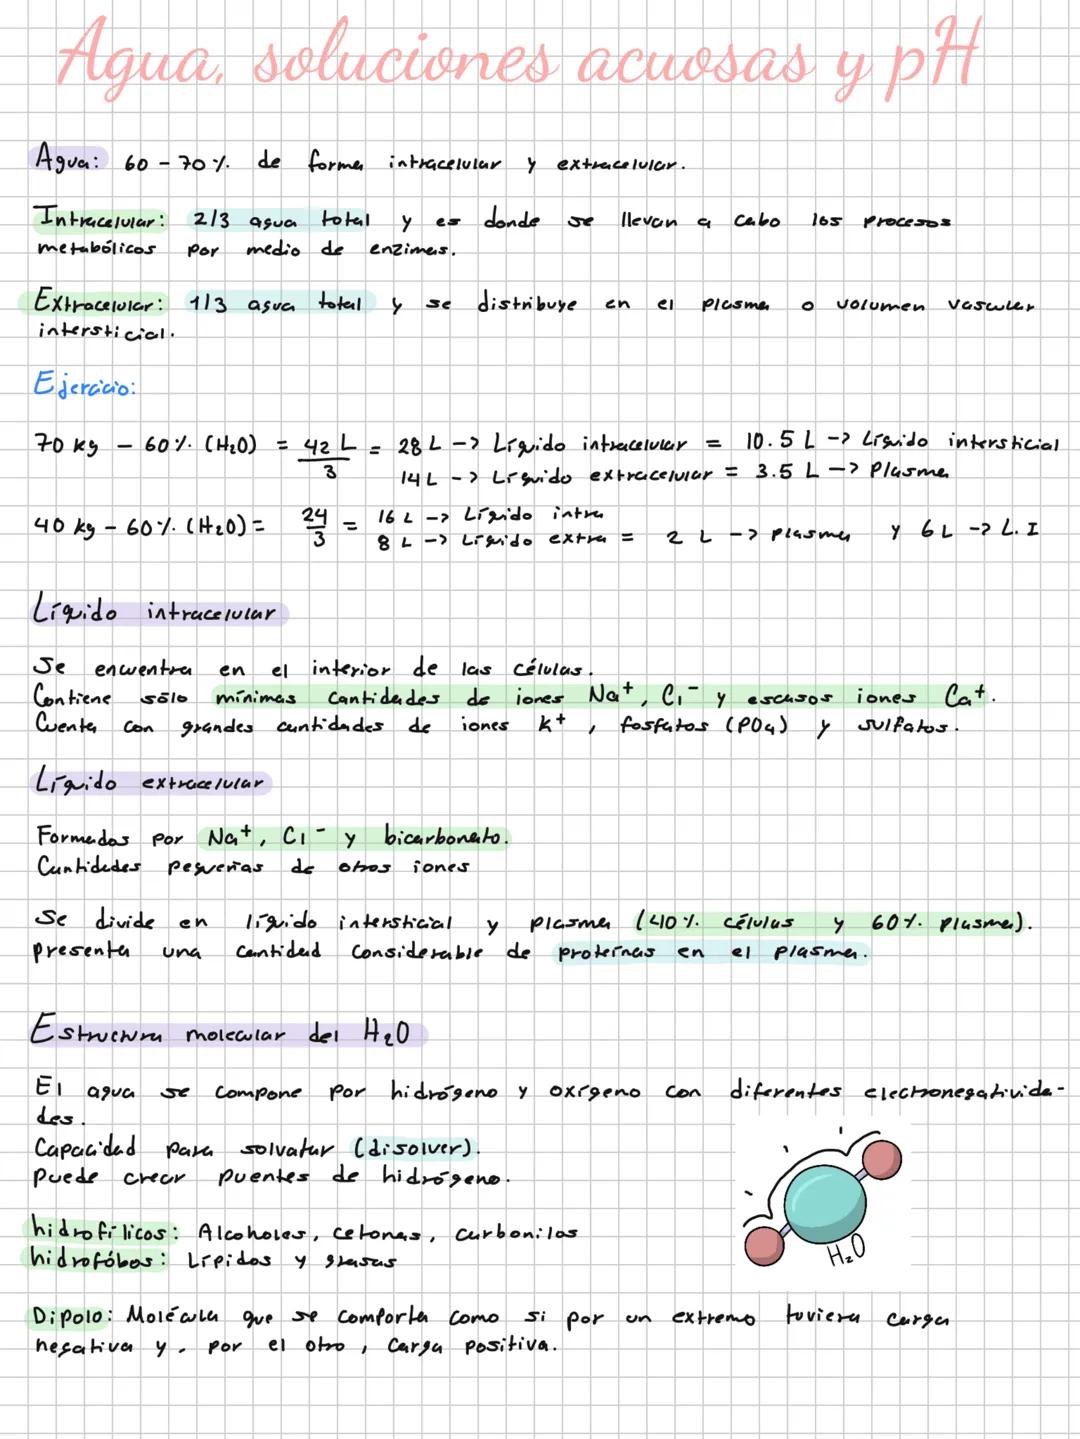 Agua, soluciones acuosas y pH
Agua: 60 - 70 % de forma intracelular y extracelular.
Intracelular: 2/3 agua total y es donde se llevan a cabo los procesos
metabólicos por medio de enzimas.
Extracelular: 1/3 agua total y se distribuye en el plasma o volumen vascular
intersticial.
Ejercicio:
70 kg - 60 % (H₂O) = 42 L / 3 = 28 L -> Líquido intracelular = 10.5 L -> Líquido intersticial
14 L -> Líquido extracelular = 3.5 L -> Plasma
40 kg - 60 % (H₂O) = 24 / 3 = 16 L -> Líquido intra
8 L -> Líquido extra = 2 L -> plasma y 6 L -> L. I
Líquido intracelular
Se encuentra en el interior de las células.
Contiene sólo mínimas cantidades de iones Na⁺, Cl⁻ y escasos iones Ca⁺.
Cuenta con grandes cantidades de iones K⁺, fosfatos (PO₄) y sulfatos.
Líquido extracelular
Formados por Na⁺, Cl⁻ y bicarbonato.
Cantidades pequeñas de otros iones
Se divide en líquido intersticial y plasma (40 % células y 60 % plasma).
presenta una cantidad considerable de proteínas en el plasma.
Estructura molecular del H₂O
El agua se compone por hidrógeno y oxígeno con diferentes electronegativida-
des.
Capacidad para solvatar (disolver).
Puede crear puentes de hidrógeno.
hidrofílicos: Alcoholes, cetonas, carbonilos
hidrofóbos: Lípidos y grasas
H₂O
Dipolo: Molécula que se comporta como si por un extremo tuviera carga
negativa y, por el otro, carga positiva.